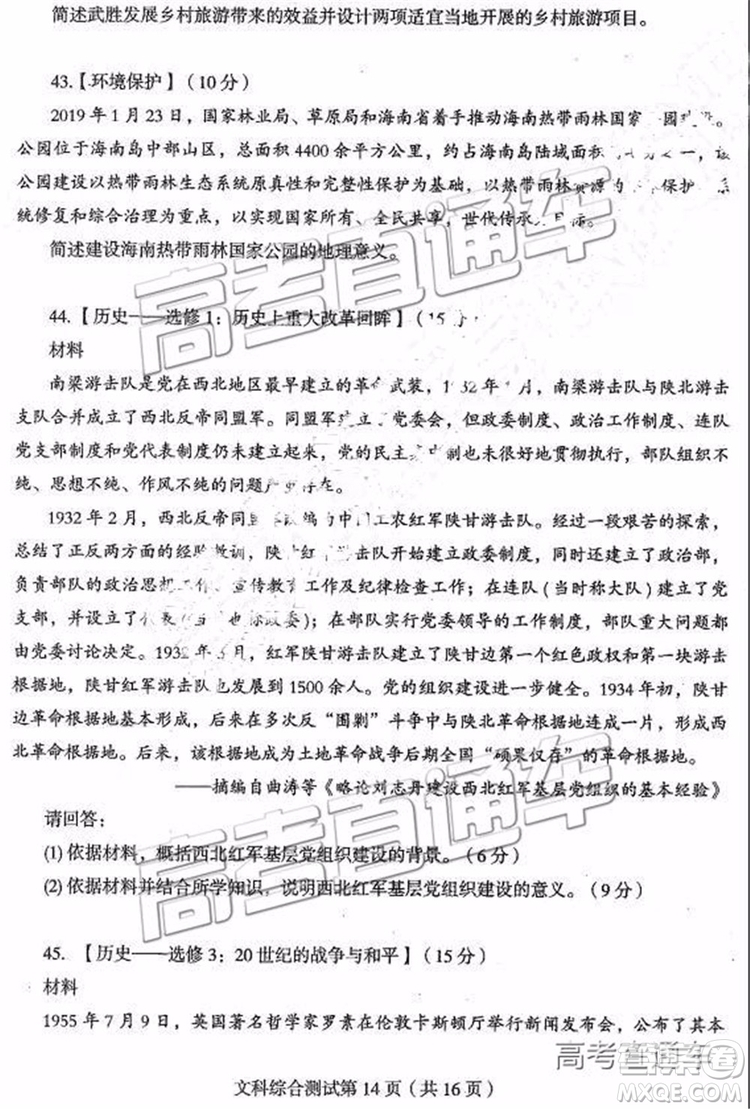 简述武胜发展乡村旅游带来的效益并设计两项适宜当地开展的乡村旅游项目。
43.【环境保护】(10分)
2019年1月23日，国家林业局、草原局和海南省着手推动海南热带雨林国家 园建 。
公园位于海南岛中部山区，总面积4400余平方公里，约占海南岛陆域面积 分之一，该
公园建设以热带雨林生态系统原真性和完整性保护为基础，以热带雨林资源的 保护 系
统修复和综合治理为重点，以实现国家所有、全民共享，世代传承为目标。
简述建设海南热带雨林国家公园的地理意义。
44.【历史——选修1：历史上重大改革回眸】(15分)
材料
南梁游击队是党在西北地区最早建立的革命武装，1932年 月，南梁游击队与陕北游击
支队合并成立了西北反帝同盟军。同盟军建立了党委会，但政委制度、政治工作制度、连队
党支部制度和党代表制度仍未建立起来，党的民主集中制也未很好地贯彻执行，部队组织不
纯、思想不纯、作风不纯的问题严重存在。
1932年2月，西北反帝同盟军改编为中国工农红军陕甘游击队。经过一段艰苦的探索，
总结了正反两方面的经验教训，陕甘游击队开始建立政委制度，随后又建立了政治部，
负责部队的政治思想工作、宣传教育工作及纪律检查工作；在连队(当时称大队)建立了党
支部，并设立了代表(当时也称政委)；在部队实行党委领导的工作制度，部队重大问题都
由党委讨论决定。1932年 月，红军陕甘游击队建立了陕甘边第一个红色政权和第一块游击
根据地，陕甘红军游击队也发展到1500余人。党的组织建设进一步健全。1934年初，陕甘
边革命根据地基本形成，后来在多次反“围剿”斗争中与陕北革命根据地连成一片，形成西
北革命根据地。后来，该根据地成为土地革命战争后期全国“硕果仅存”的革命根据地。
——摘编自曲涛等《略论刘志丹建设西北红军基层党组织的基本经验》
请回答：
(1)依据材料，概括西北红军基层党组织建设的背景。(6分)
(2)依据材料并结合所学知识，说明西北红军基层党组织建设的意义。(9分)
45.【历史——选修3：20世纪的战争与和平】(15分)
材料
1955年7月9日，英国著名哲学家罗素在伦敦卡斯顿厅举行新闻发布会，公布了其本
文科综合测试第14页(共16页)
高考直通车
高考直通车
高考直通车
MXQE.COM